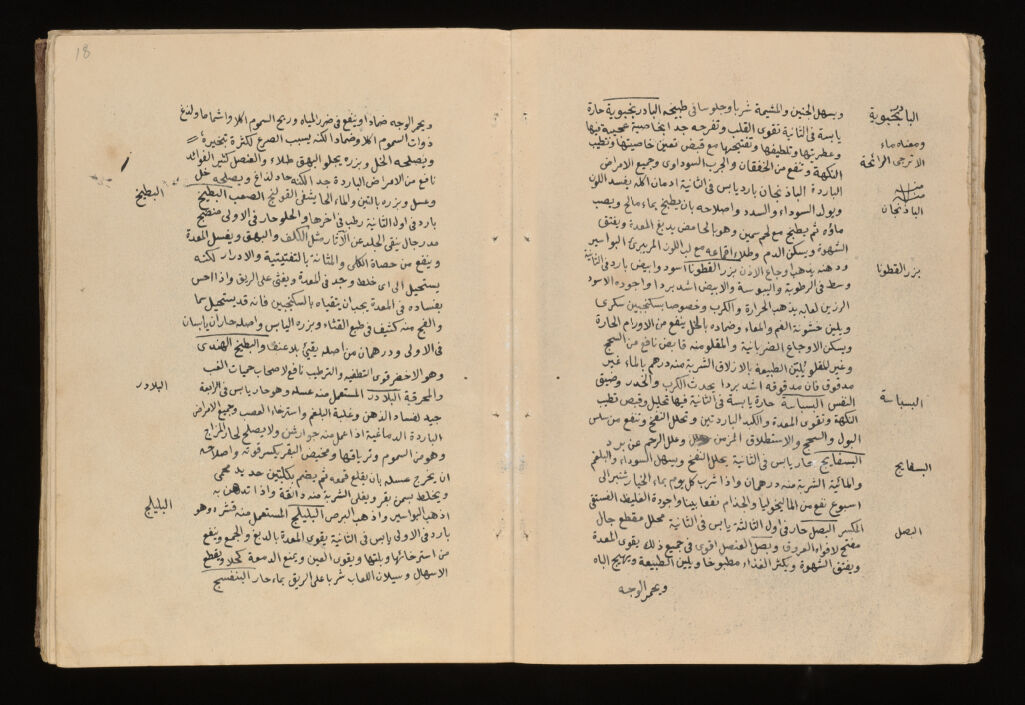 ويسهل الجنين والمشيمة شربا وجلوسا فى طبيخه البادرنجبوية حارة
يابسة فى الثانية تقوى القلب وتفرحه جدا بخاصية عجيبة فيها
وعطريتها وتلطيفها وتفتيحها مع قبض فمن خاصيتها وتطيب
النكهة وتنفع من الخفقان والجرب السوداوى وجميع الامراض
الباردة الباذنجان بارد يابس فى الثانية ادمان اكله يفسد اللون
ويولد السوداء والسدد واصلاحه بان يطبخ بماء مالح ويصب
ماؤه ثم يطبخ مع لحم سمين وهو بالحامض يدبغ المعدة ويفتق
الشهوة ويسكن الدم وطلاء اقماعه مع لب اللوز المر يبرى البواسير
ودهنه يذهب اوجاع الاذن بزر القطونا اسود وابيض بارد فى الثانية
وسط فى الرطوبة واليبوسة والابيض اشد بردا واجوده الاسود
الرزين لعابه يذهب الحرارة والكرب وخصوصا بسكنجبين سكرى
ويلين خشونة الفم والمعاء وضماده بالخل ينفع من الاورام الحارة
ويسكن الاوجاع الضربانية والمقلو منه قابض نافع من السحج
وغير المقلو يلين الطبيعة بالازلاق الشربة منه درهم بالماء غير
مدقوق فان مدقوقه اشد بردا يحدث الكرب والخدر وضيق
النفس البسباسة حارة يابسة فى الثانية فيها تحليل وقبض تطيب
النكهة وتقوى المعدة والكبد الباردتين وتحلل النفخ وتنفع من سلس
البول والسحج والاستطلاق المزمن وعلل الرحم عن برد
البسفايج حار يابس فى الثانية يحلل النفخ ويسهل السوداء والبلغم
والمائية الشربة منه درهمان واذا شرب كل يوم بماء الخيار شنبر الى
اسبوع نفع من الماليخوليا والجذام نفعا بينا واجوده الغليظ الفستقى
المكسر البصل حار فى اول الثالثة يابس فى الثانية محلل مقطع جال
مفتح لافواه العروق وبصل العنصل اقوى فى جميع ذلك يقوى المعدة
ويفتق الشهوة ويكثر الغذاء مطبوخا ويلين الطبيعة ويهيج الباه
ويحمر الوجه
البادرنجبوية
ومعناه ماء
الاترجى الرائحة
الباذنجان
بزر القطونا
البسباسة
البسفايج
البصل
18
ويحمر الوجه ضمادا وينفع فى ضرر المياه وريح السموم اكلا واشماما ولذغ
ذوات السموم اكلا وضمادا لكنه يسبب الصرع لكثرة تبخيره
ويصلحه الخل وبزره يجلو البهق طلاء والعنصل كثير الفوائد
نافع من الامراض الباردة جدا لكنه حاد لذاغ ويصلحه خل
وعسل وبزره بالتين والماء الحار يشفى القولنج الصعب البطيخ
بارد فى اول الثانية رطب فى اخرها والحلو حار فى الاولى منضج
مدر جال ينقى الجلد عن الآثار مثل الكلف والبهق ويغسل المعدة
وينفع من حصاة الكلى والمثانة بالتفتيتية والادرار لكنه
يستحيل الى اى خلط وجد فى المعدة ويغثى على الريق واذا احس
بفساده فى المعدة يجب ان يتقياه بالسكنجبين فانه قد يستحيل سما
والفج منه كثيف فى طبع القثاء وبزره اليابس واصله حاران يابسان
فى الاولى ودرهمان من اصله يقيئ بلا عنف والبطيخ الهندى
وهو الاخضر قوى التطفيه والترطيب نافع لاصحاب حميات الغب
والمحرقة البلادر المستعمل منه عسله وهو حار يابس فى الرابعة
جيد لفساد الذهن وغلبة البلغم واسترخاء العصب وجميع الامراض
الباردة الدماغية اذا عمل منه جوارشن ولا يصلح لحار المزاج
وهو من السموم وترياقها ومخيض البقر يكسر قوته واصلاحه
ان يخرج عسله بان يقلع قمعه ثم يضم بكلبتين حديد محمى
ويخلط بسمن بقر ويغلى الشربة منه دانقة واذا تدهن به
اذهب البواسير واذهب البرص البليلج المستعمل منه قشره وهو
بارد فى الاولى يابس فى الثانية يقوى المعدة بالدبغ والجمع وينفع
من استرخائها وبلتها ويقوى العين ويمنع الدمعة كحلا ويقطع
الاسهال وسيلان اللعاب شربا على الريق بماء حار البنفسج
البطيخ
البلادر
البليلج